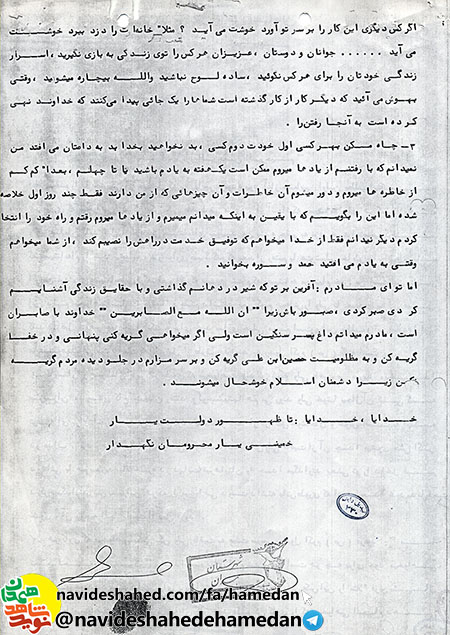 اگر کس دیگری این کار را بر سر تو آورد خوشت می آید ؟ مثلا" خانه ات را دزد ببرد خوشت
می آید ...... جوانان و دوستان ، عزیزان هر کس را توی زندگی به بازی نگیرید ، اسرار
زندگی خودتان را برای هر کس نگوئید ، ساده لوح نباشید والله بیچاره میشوید ، وقتی
بهوش می آئید که دیگر کار از کار گذشته است شماها را یک جائی پیدا می کنند که خداوند نهی
کرده است به آنجا رفتن را .
۳- چاه مکن بهر کسی اول خودت دوم کسی ، بد نخواهید بخدا بد به دامنتان می افتد من
نمیدانم که با رفتنم از یادها میروم ممکن است یک هفته به یادم باشید یا تا چهلم ، بعدا" کم کم
از خاطره ها میروم و دور میشوم آن خاطرات و آن چیزهائی که از من دارند فقط چند روز اول خلاصه
شده اما این را بگویم که با یقین به اینکه میدانم میمیرم و از یادها میروم رفتم و راه خود را انتخا
کردم دیگر نیدانم فقط از خدا میخواهم که توفیق خدمت در راهش را نصیبم کند ، از شما میخواهم
وقتی به یادم می افتید حمد و سوره بخوانید .
اما تو ای مادرم : آفرین بر تو که شیر در دهانم گذاشتی و با حقایق زندگی آشنایم
کردی صبر کردی ، صبور باش زیرا " ان الله مع الصابرین " خداوند با صابران
است ، مادرم میدانم داغ پسر سنگین است ولی اگر میخواهی گریه کنی پنهانی و در خفا
گریه کن و به مظلومیت حسین ابن علی گریه کن و بر سر مزارم در جلو دیده مردم گریه
زیرا دشمنان اسلام خوشحال میشوند .
خدایا ، خدایا : تا ظهور دولت یار
خمینی یار محرومان نگهدار
navideshahed.com/fa/hamedan
@navideshahedehamedan
نوید شاهد همدان